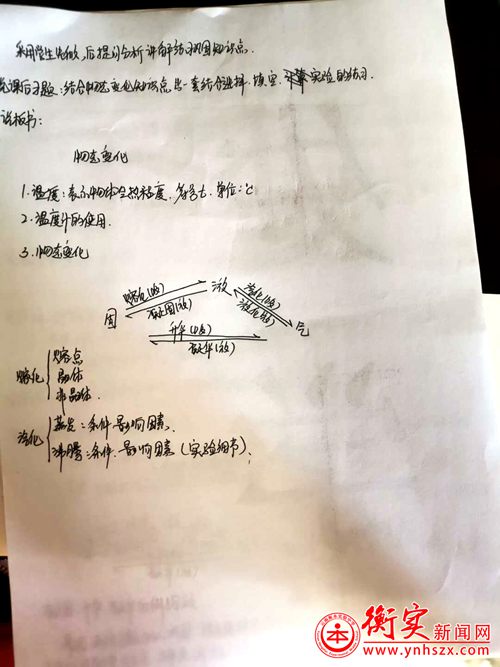 采用学生先做,后提问分析讲解练习巩固知识点.
说课后习题:结合物态变化知识点出一套结合选择、填空、实验的练习.
说板书:
物态变化
1.温度:表示物体冷热程度.符号t.单位:℃
2.温度计的使用.
3.物态变化
熔化(吸) 液 汽化(吸)
固 凝固(放) 液化(放) 气
升华(吸)
凝华(放)
熔化 { 熔点
晶体
非晶体.
汽化 { 蒸发:条件.影响因素.
沸腾:条件.影响因素(实验细节).
衡实新闻网
www.ynhszx.com